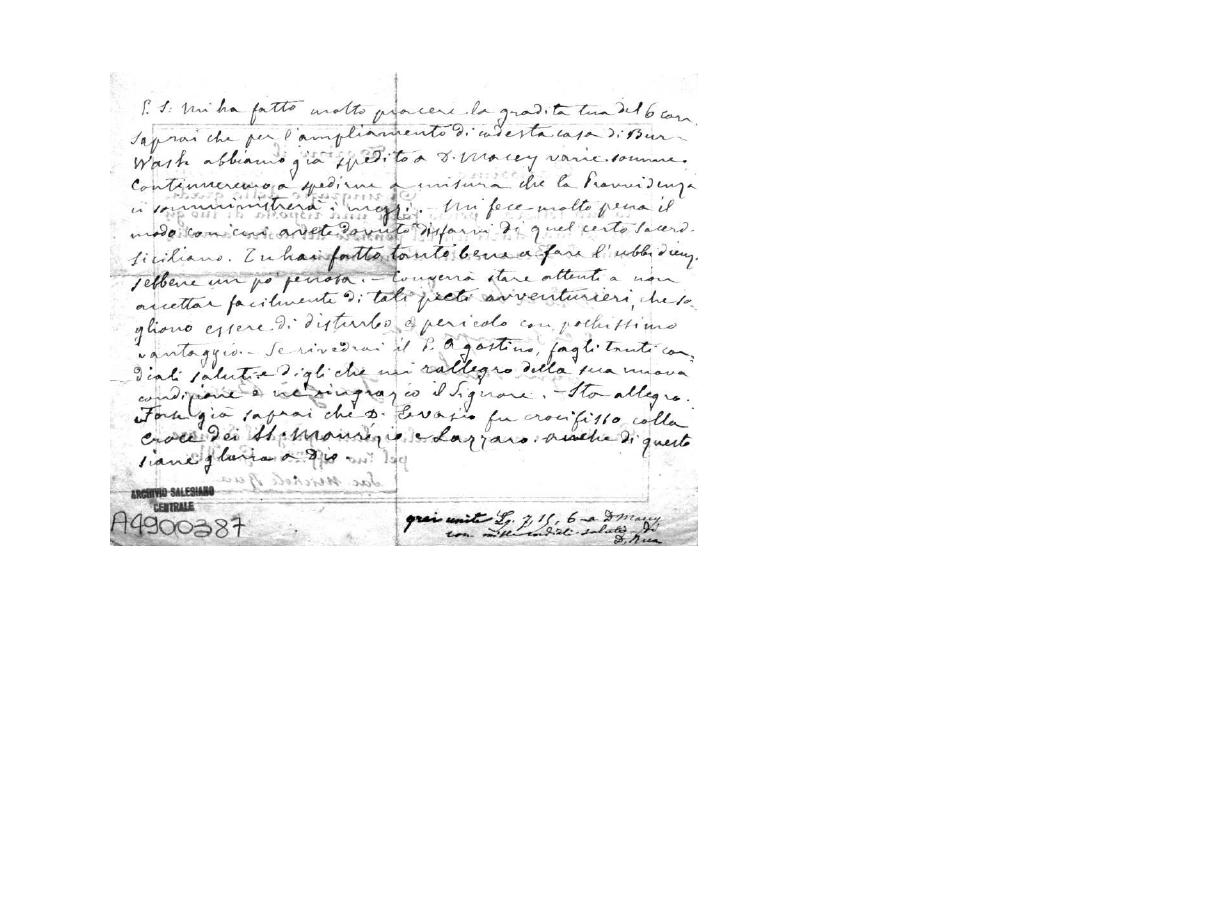 P. S. Mi ha fatto molto piacere la gradita tua del 6 corr.
Saprai che per l'ampliamento di codesta casa di Bur-
Wash abbiamo già spedito a D. Macey varie somme.
Continueremo a spedirne a misura che la Provvidenza
ci somministrerà i mezzi. - Mi fece molto pena il
modo con cui avete dovuto disfarvi di quel certo sacerd.
siciliano. Tu hai fatto tanto bene a fare l'ubbidienz.
sebbene un po' penosa. - Converrà stare attenti a non
accettar facilmente di tali preti avventurieri, che so-
gliono essere di disturbo e pericolo con pochissimo
vantaggio. - Se rivedrai il P. Agostino, fagli tanti cor-
diali saluti e digli che mi rallegro della sua nuova
condizione e ne ringrazio il Signore. - Sta allegro.
Forse già saprai che D. Cevasio fu crocifisso colla
croce dei SS. Maurizio e Lazzaro. Anche di questo
siane gloria a Dio
ARCHIVIO SALESIANO
CENTRALE
A4900387
qui unite 7, 15, 6 a D Macey
con mille cordiali saluti di
D. Rua